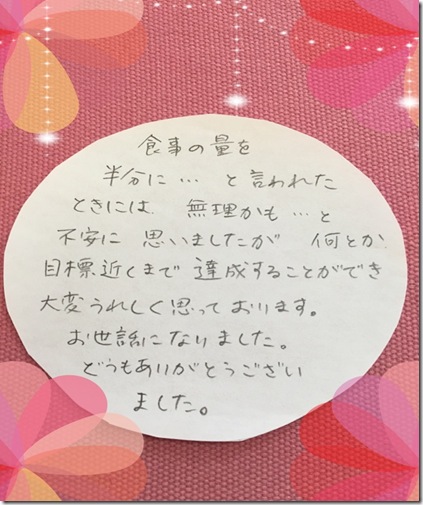 食事の量を
半分に… と言われた
ときには 無理かも…と
不安に 思いましたが 何とか
目標近くまで 達成することができ
大変うれしく思っております。
お世話になりました。
どうもありがとうござい
ました。